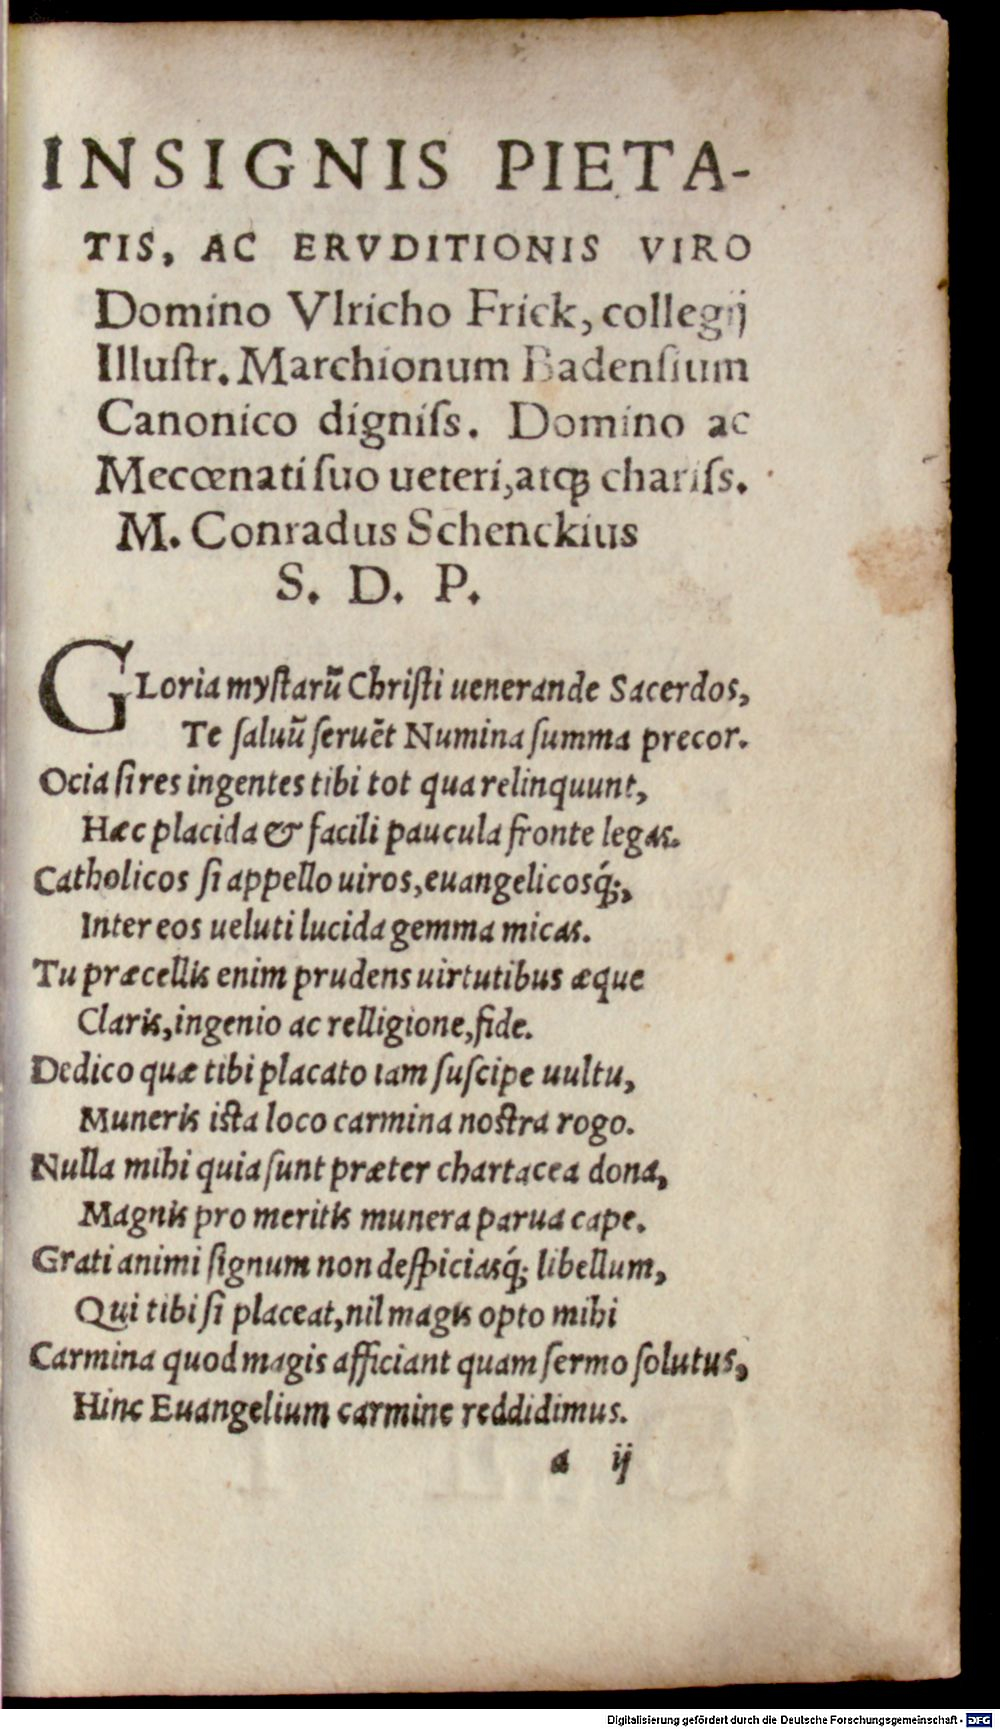 INSIGNIS PIETA-
TIS, AC ERVDITIONIS VIRO
Domino Vlricho Frick, collegij
Illuſtr. Marchionum Badenſium
Canonico digniſs. Domino ac
Mecœnati ſuo ueteri, atq́ꝫ chariſs.
M. Conradus Schenckius
S. D. P.
GLoria myſtarũ Chriſti uenerande Sacerdos,
Te ſaluũ ſeruẽt Numina ſumma precor.
Ocia ſi res ingentes tibi tot qua relinquunt,
Hæc placida & facili paucula fronte legas.
Catholicos ſi appello uiros, euangelicosq́;,
Inter eos ueluti lucida gemma micas.
Tu præcellis enim prudens uirtutibus æque
Claris, ingenio ac relligione, fide.
Dedico quæ tibi placato iam ſuſcipe uultu,
Muneris iſta loco carmina noſtra rogo.
Nulla mihi quia ſunt præter chartacea dona,
Magnis pro meritis munera parua cape.
Grati animi ſignum non deſpiciasq́; libellum,
Qui tibi ſi placeat, nil magis opto mihi
Carmina quod magis afficiant quam ſermo ſolutus,
Hinc Euangelium carmine reddidimus.
a ij
Digitalisierung gefördert durch die Deutsche Forschungsgemeinschaft - DFG